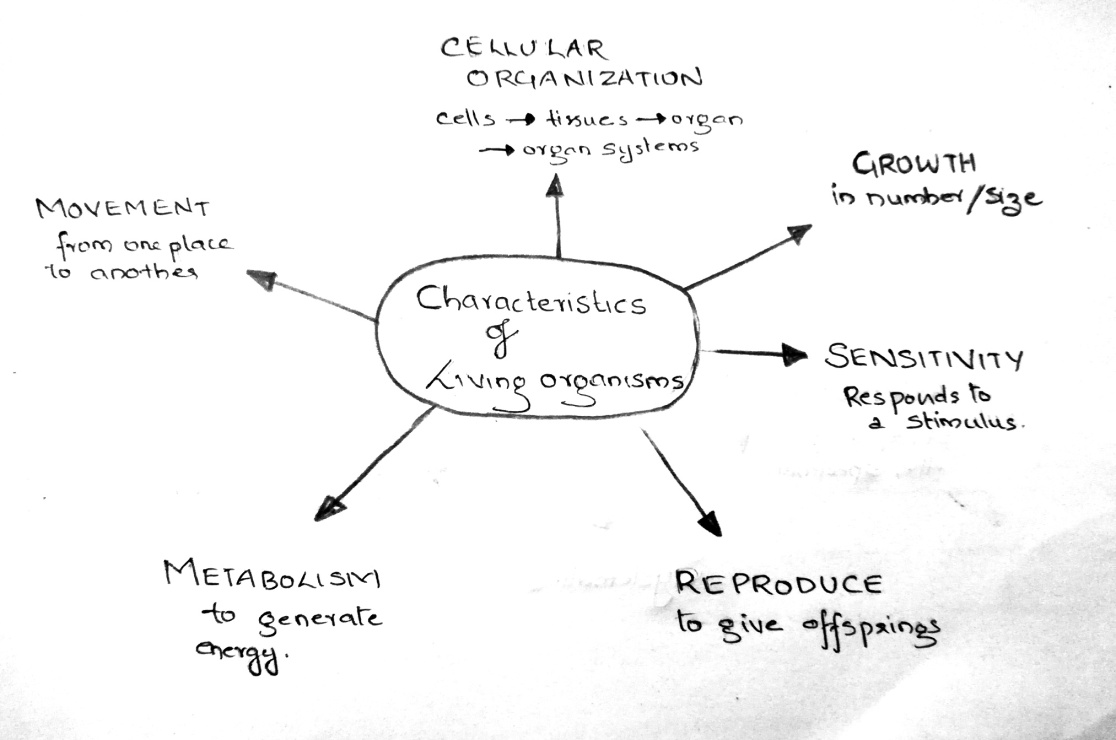 CELLULAR
ORGANIZATION
cells → tissues → organ
→ organ systems
GROWTH
in number/size
MOVEMENT
from one place
to another
Characteristics
of
Living organisms
SENSITIVITY
Responds to
a stimulus.
METABOLISM
to generate
energy.
REPRODUCE
to give offsprings